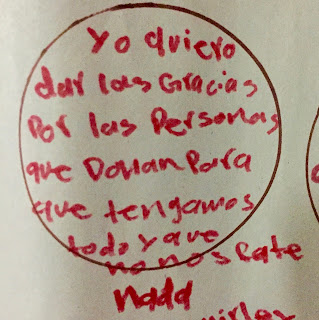 Yo quiero
dar las Gracias
Por las Personas
que Donan Para
que tengamos
todo y que
no nos Fate
nada